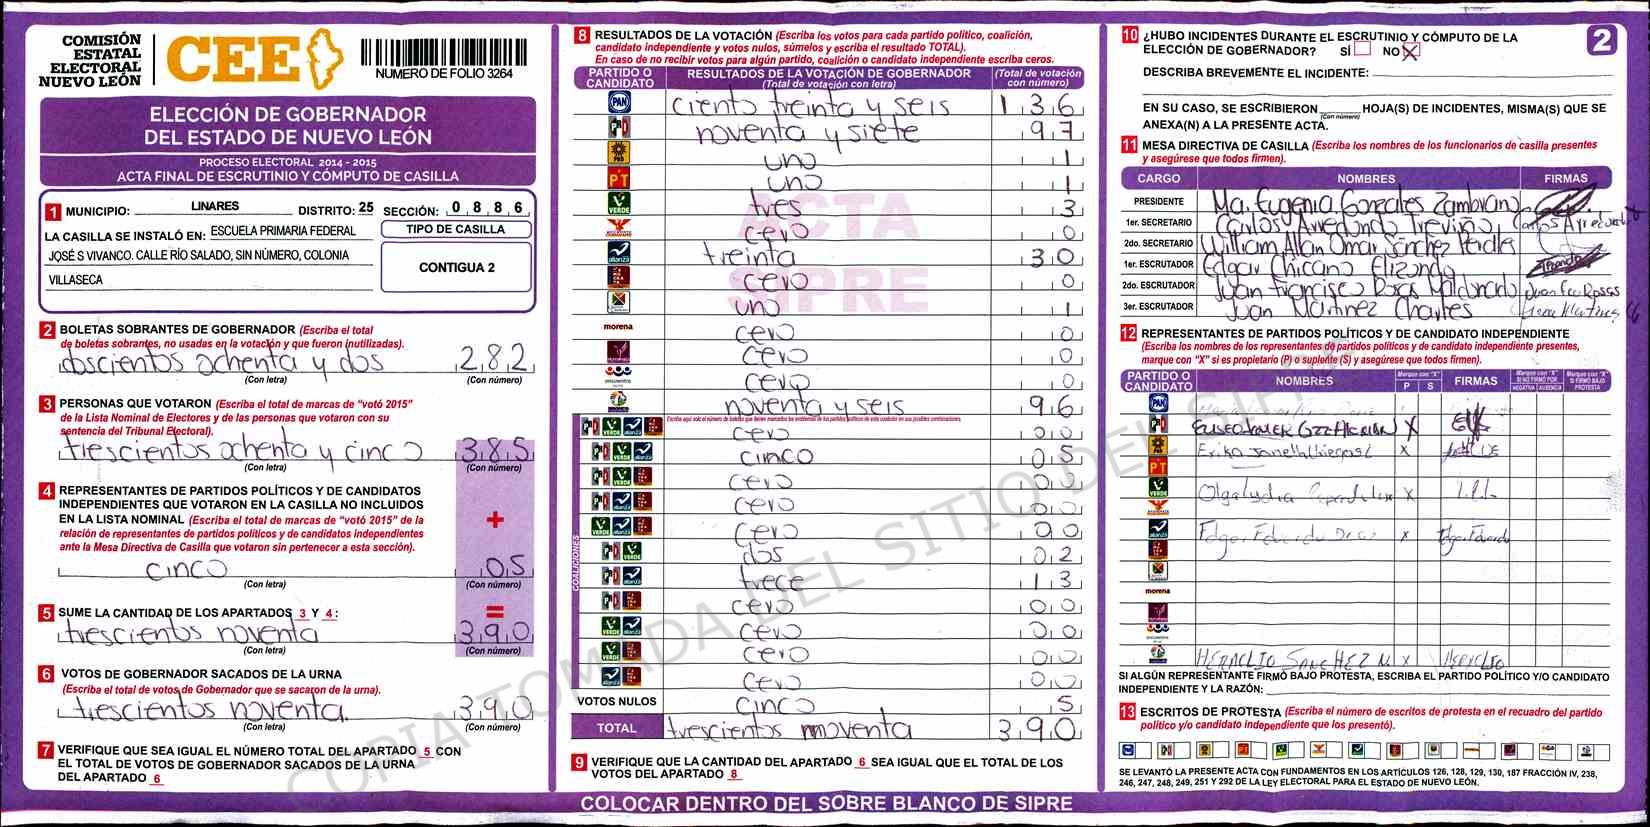 COMISIÓN
ESTATAL
ELECTORAL
NUEVO LEÓN
CEE
NUMERO DE FOLIO 3264
ELECCIÓN DE GOBERNADOR
DEL ESTADO DE NUEVO LEÓN
PROCESO ELECTORAL 2014 - 2015
ACTA FINAL DE ESCRUTINIO Y CÓMPUTO DE CASILLA
1 MUNICIPIO: LINARES DISTRITO: 25 SECCIÓN: 0 8 8 6
LA CASILLA SE INSTALÓ EN: ESCUELA PRIMARIA FEDERAL
JOSÉ S VIVANCO. CALLE RÍO SALADO, SIN NÚMERO, COLONIA
VILLASECA
TIPO DE CASILLA
CONTIGUA 2
2 BOLETAS SOBRANTES DE GOBERNADOR (Escriba el total
de boletas sobrantes, no usadas en la votación y que fueron inutilizadas).
doscientos ochenta y dos 2 8 2
(Con letra) (Con número)
3 PERSONAS QUE VOTARON (Escriba el total de marcas de "votó 2015"
de la Lista Nominal de Electores y de las personas que votaron con su
sentencia del Tribunal Electoral).
trescientos ochenta y cinco 3 8 5
(Con letra) (Con número)
4 REPRESENTANTES DE PARTIDOS POLÍTICOS Y DE CANDIDATOS
INDEPENDIENTES QUE VOTARON EN LA CASILLA NO INCLUIDOS
EN LA LISTA NOMINAL (Escriba el total de marcas de "votó 2015" de la
relación de representantes de partidos políticos y de candidatos independientes
ante la Mesa Directiva de Casilla que votaron sin pertenecer a esta sección).
+
cinco 0 5
(Con letra) (Con número)
5 SUME LA CANTIDAD DE LOS APARTADOS 3 Y 4: =
trescientos noventa 3 9 0
(Con letra) (Con número)
6 VOTOS DE GOBERNADOR SACADOS DE LA URNA
(Escriba el total de votos de Gobernador que se sacaron de la urna).
trescientos noventa. 3 9 0
(Con letra) (Con número)
7 VERIFIQUE QUE SEA IGUAL EL NÚMERO TOTAL DEL APARTADO 5 CON
EL TOTAL DE VOTOS DE GOBERNADOR SACADOS DE LA URNA
DEL APARTADO 6
8 RESULTADOS DE LA VOTACIÓN (Escriba los votos para cada partido político, coalición,
candidato independiente y votos nulos, súmelos y escriba el resultado TOTAL).
En caso de no recibir votos para algún partido, coalición o candidato independiente escriba ceros.
PARTIDO O CANDIDATO RESULTADOS DE LA VOTACIÓN DE GOBERNADOR (Total de votación con letra) (Total de votación con número)
PAN ciento treinta y seis 1 3 6
PRI noventa y siete 9 7
PRD uno 1
PT uno 1
VERDE tres 3
cero 0
alianza treinta 3 0
cero 0
uno 1
morena cero 0
cero 0
encuentro cero 0
noventa y seis 9 6
COALICIONES
cero 0 0
cinco 0 5
cero 0 0
cero 0 0
cero 0 0
dos 0 2
trece 1 3
cero 0 0
cero 0 0
cero 0 0
cero 0 0
VOTOS NULOS cinco 5
TOTAL trescientos noventa 3 9 0
ACTA
SIPRE
9 VERIFIQUE QUE LA CANTIDAD DEL APARTADO 6 SEA IGUAL QUE EL TOTAL DE LOS
VOTOS DEL APARTADO 8
COLOCAR DENTRO DEL SOBRE BLANCO DE SIPRE
2
10 ¿HUBO INCIDENTES DURANTE EL ESCRUTINIO Y CÓMPUTO DE LA
ELECCIÓN DE GOBERNADOR? SÍ NO X
DESCRIBA BREVEMENTE EL INCIDENTE:
EN SU CASO, SE ESCRIBIERON HOJA(S) DE INCIDENTES, MISMA(S) QUE SE
(Con número)
ANEXA(N) A LA PRESENTE ACTA.
11 MESA DIRECTIVA DE CASILLA (Escriba los nombres de los funcionarios de casilla presentes
y asegúrese que todos firmen).
CARGO NOMBRES FIRMAS
PRESIDENTE Ma. Eugenia Gonzales Zambrano
1er. SECRETARIO Carlos Arredondo Treviño Carlos Arredondo
2do. SECRETARIO William Allan Omar Sánchez
1er. ESCRUTADOR Edgar Chicano Elizondo
2do. ESCRUTADOR Juan Francisco Rosas Maldonado Juan Fco Rosas
3er. ESCRUTADOR Juan Martinez Charles Juan Martinez
12 REPRESENTANTES DE PARTIDOS POLÍTICOS Y DE CANDIDATO INDEPENDIENTE
(Escriba los nombres de los representantes de partidos políticos y de candidato independiente presentes,
marque con "X" si es propietario (P) o suplente (S) y asegúrese que todos firmen).
PARTIDO O CANDIDATO NOMBRES Marque con "X" P S FIRMAS Marque con "X" SI NO FIRMÓ POR NEGATIVA AUSENCIA Marque con "X" SI FIRMÓ BAJO PROTESTA
PAN
PRI X
PRD Erika Janeth X
PT
VERDE Olga Lydia X
Edgar Eduardo X Edgar Eduardo
morena
HERACLIO SANCHEZ M X HERACLIO
SI ALGÚN REPRESENTANTE FIRMÓ BAJO PROTESTA, ESCRIBA EL PARTIDO POLÍTICO Y/O CANDIDATO
INDEPENDIENTE Y LA RAZÓN:
13 ESCRITOS DE PROTESTA (Escriba el número de escritos de protesta en el recuadro del partido
político y/o candidato independiente que los presentó).
SE LEVANTÓ LA PRESENTE ACTA CON FUNDAMENTOS EN LOS ARTÍCULOS 126, 128, 129, 130, 187 FRACCIÓN IV, 238,
246, 247, 248, 249, 251 Y 292 DE LA LEY ELECTORAL PARA EL ESTADO DE NUEVO LEÓN.
COPIA TOMADA DEL SITIO DEL SIPRE